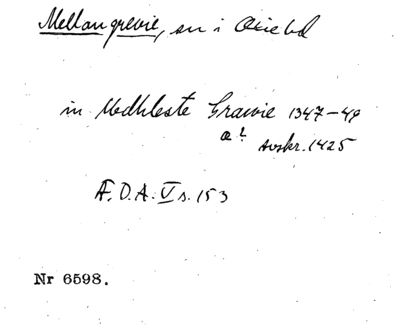 Mellangrevie, sn i Oxie hd
in Medhleste Grawie 1347-49
a? avskr. 1425
Æ.D.A. V s. 153
Nr 6598.